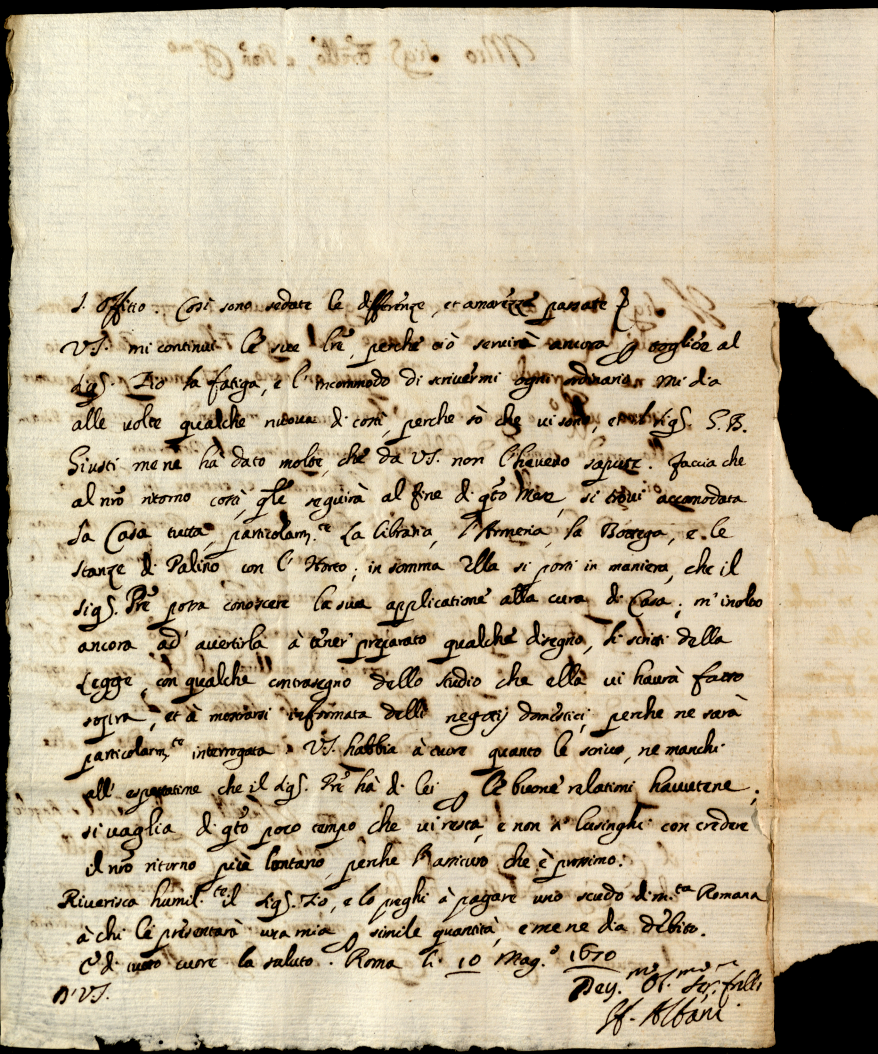 S. Offitio Così sono sedate le differenze, et amarezze passate
VS. mi continui le sue lre, perche ciò servirà ancora p toglier al
Sigr. Zio la fatiga, e l'incommodo di scrivermi ogni ordinario mi dia
alle volte qualche nuova di costì, perche sò che vi sono, e il Sigr. G. B.
Giusti me ne hà dato molte, che da VS. non l'havevo sapute. faccia che
al nro ritorno costà, qle seguirà al fine di qto Mese, si trovi accomodata
la Casa tutta, particolarmte la libraria, l'Armeria, la Bottega, e le
stanze di Palino con l'Horto; in somma Ella si porti in maniera, che il
Sigr. Pre potra conoscere la sua applicatione alla cura di Casa; m'inolto
ancora ad' avertirla à tener' preparato qualche disegno, li scritti della
Legge, con qualche contrasegno dello studio che ella vi haurà fatto
sopra, et à mostrarsi informata delli negotij domestici, perche ne sarà
particolarmte interrogata VS. habbia à cuore quanto le scrivo, ne manchi
all' espettatione che il Sigr. Pre hà di lei p le buone relationi havutene;
si vaglia di qto poco tempo che vi resta, e non si lusinghi con credere
il nro ritorno più lontano, perche l'assicuro che è prossimo.
Riverisca humilte il Sigr. Zio, e lo preghi à pagare uno scudo di mta Romana
à chi le presentarà una mia p simile quantità, e me ne dia debito.
E di tutto cuore la saluto. Roma li 10 Mago 1670
D' VS. Devmo Obmo Ser. frello
Albani